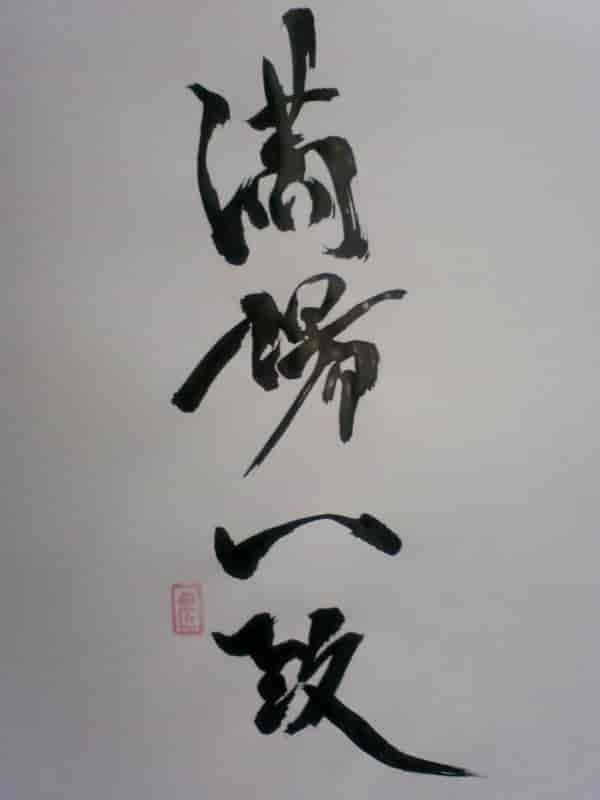 満場一致